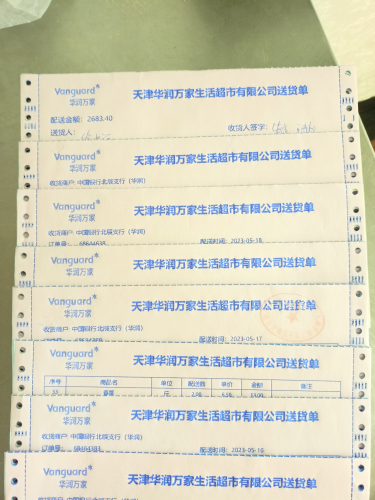 Vanguard 华润万家 天津华润万家生活超市有限公司送货单
配送金额: 2683.40
送货人: 收货人签字:
Vanguard 华润万家 天津华润万家生活超市有限公司送货单
收货商户: 中国银行北辰支行 (华润)
Vanguard 华润万家 天津华润万家生活超市有限公司送货单
收货商户: 中国银行北辰支行 (华润)
订单号: 68644638 配送时间: 2023-05-18
Vanguard 华润万家 天津华润万家生活超市有限公司送货单
Vanguard 华润万家 天津华润万家生活超市有限公司送货单
收货商户: 中国银行北辰支行 (华润)
配送时间: 2023-05-17
Vanguard 华润万家 天津华润万家生活超市有限公司送货单
序号 商品名 单位 配送数 单价 金额 备注
Vanguard 华润万家 天津华润万家生活超市有限公司送货单
收货商户: 中国银行北辰支行 (华润)
订单号: 配送时间: 2023-05-16
Vanguard 华润万家 天津华润万家生活超市有限公司送货单